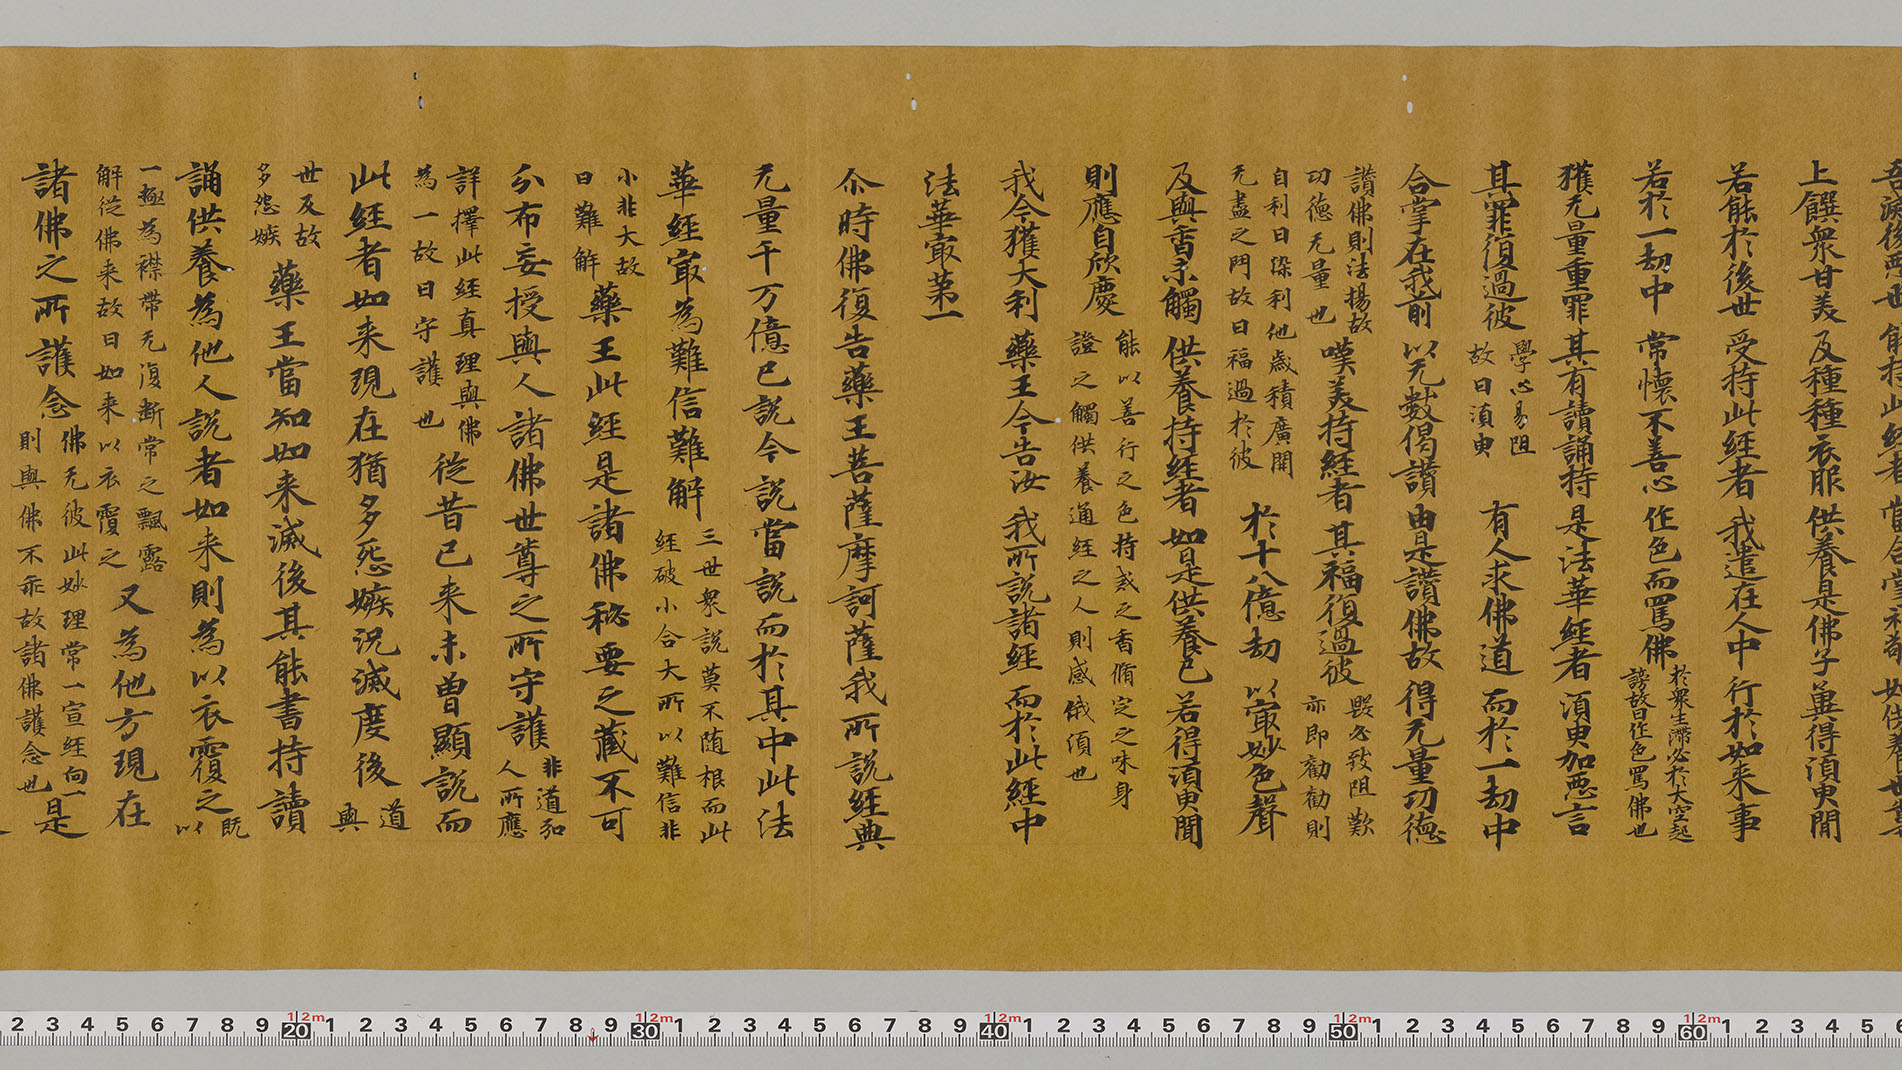 吾滅後惡世 能持此經者 當合掌礼敬 如供養世尊
上饌衆甘美 及種種衣服 供養是佛子 冀得湏臾聞
若能於後世 受持此經者 我遣在人中 行於如来事
若於一劫中 常懷不善心 作色而罵佛 於衆生滯必於大空起
謗故曰作色罵佛也
獲无量重罪 其有讀誦持 是法華經者 湏臾加惡言
其罪復過彼 學心易阻
故曰湏臾 有人求佛道 而於一劫中
合掌在我前 以无數偈讚 由是讚佛故 得无量功德
讚佛則法揚故
功德无量也 嘆美持經者 其福復過彼 毀必致阻歎
亦即勸勸則
自利曰染利他歲積廣開
无盡之門故曰福過於彼 於十八億劫 以㝡妙色聲
及與香味觸 供養持經者 如是供養已 若得湏臾聞
則應自欣慶 能以善行之色持戒之香脩定之味身
證之觸供養通經之人則感俄湏也
我今獲大利 藥王今告汝 我所說諸經 而於此經中
法華㝡第一
尒時佛復告藥王菩薩摩訶薩我所說經典
无量千万億已說今說當說而於其中此法
華經㝡為難信難解 三世衆說莫不随根而此
經破小合大所以難信非
小非大故
曰難解 藥王此經是諸佛秘要之藏不可
分布妄授與人諸佛世尊之所守護 非道弘
人所應
詳擇此經真理與佛
為一故曰守護也 從昔已来未曾顯說而
此經者如来現在猶多怨嫉况滅度後 道
與
世及故
多怨嫉 藥王當知如来滅後其能書持讀
誦供養為他人說者如来則為以衣覆之 既
以
一極為襟帶无復断常之飄露
解從佛来故曰如来以衣覆之 又為他方現在
諸佛之所護念 佛无彼此妙理常一宣經向一
則與佛不乖故諸佛護念也 是
2 3 4 5 6 7 8 9 20 1 2 3 4 5 6 7 8 9 30 1 2 3 4 5 6 7 8 9 40 1 2 3 4 5 6 7 8 9 50 1 2 3 4 5 6 7 8 9 60 1 2 3 4 5
12m 12m 12m 12m 12m